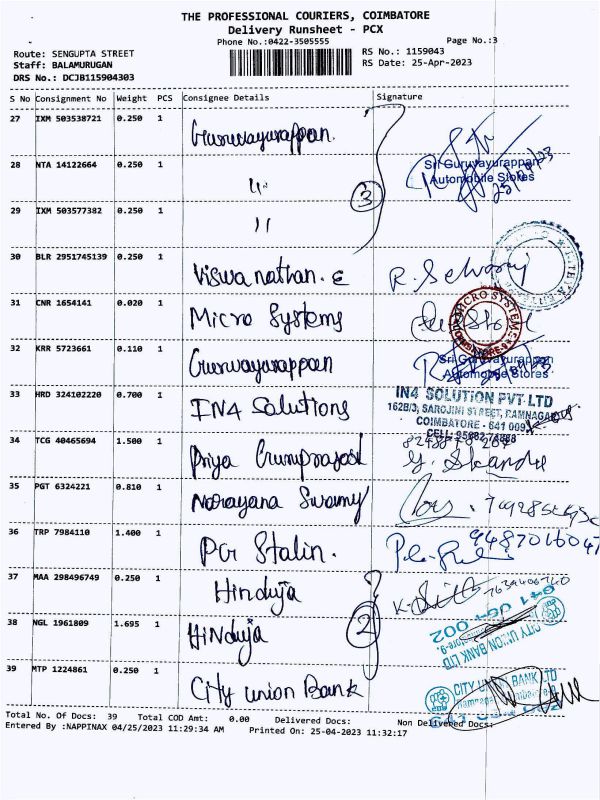 THE PROFESSIONAL COURIERS, COIMBATORE
Delivery Runsheet - PCX
Phone No.:0422-3505555 Page No.:3
Route: SENGUPTA STREET RS No.: 1159043
Staff: BALAMURUGAN RS Date: 25-Apr-2023
DRS No.: DCJB115904303
S No Consignment No Weight PCS Consignee Details Signature
27 IXM 503538721 0.250 1 Guruvayurappan.
28 NTA 14122664 0.250 1 Sri Guruvayurappan
Automobile Stores
3
29 IXM 503577382 0.250 1 11
30 BLR 2951745139 0.250 1 Viswanathan. E R. Selvaraj
31 CNR 1654141 0.020 1 Micro Systems MICRO SYSTEMS
32 KRR 5723661 0.110 1 Guruvayurappan Sri Guruvayurappan
Automobile Stores
33 HRD 324102220 0.700 1 IN4 Solutions IN4 SOLUTION PVT LTD
162B/3, SAROJINI STREET, RAMNAGAR
COIMBATORE - 641 009
34 TCG 40465694 1.500 1 Priya
35 PGT 6324221 0.810 1 Narayana Swamy
36 TRP 7984110 1.400 1 PG Stalin. 9487016047
37 MAA 298496749 0.250 1 Hinduja
38 NGL 1961809 1.695 1 Hinduja 2 CITY UNION BANK LTD
39 MTP 1224861 0.250 1 City union Bank CITY UNION BANK LTD
Total No. Of Docs: 39 Total COD Amt: 0.00 Delivered Docs: Non Delivered Docs:
Entered By :NAPPINAX 04/25/2023 11:29:34 AM Printed On: 25-04-2023 11:32:17